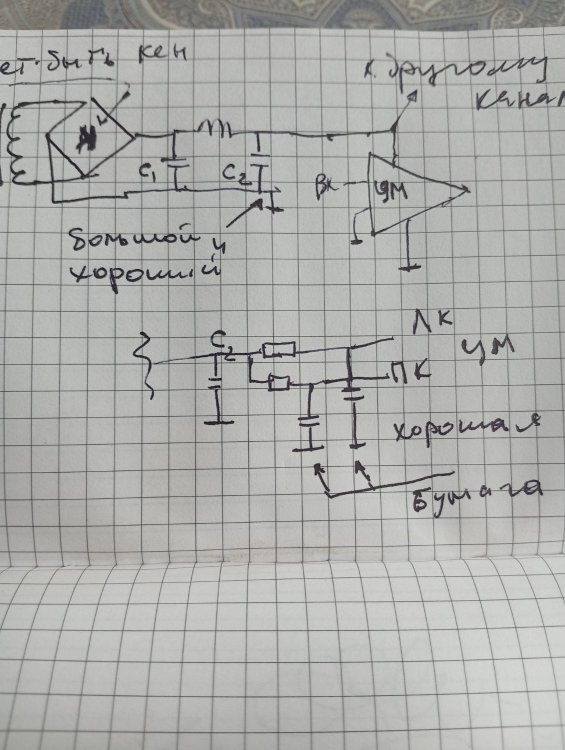 ет быть кен
к другому
канал
C1
C2
Вх
УМ
большой и
хороший
C2
ЛК
УМ
ПК
хорошая
бумага